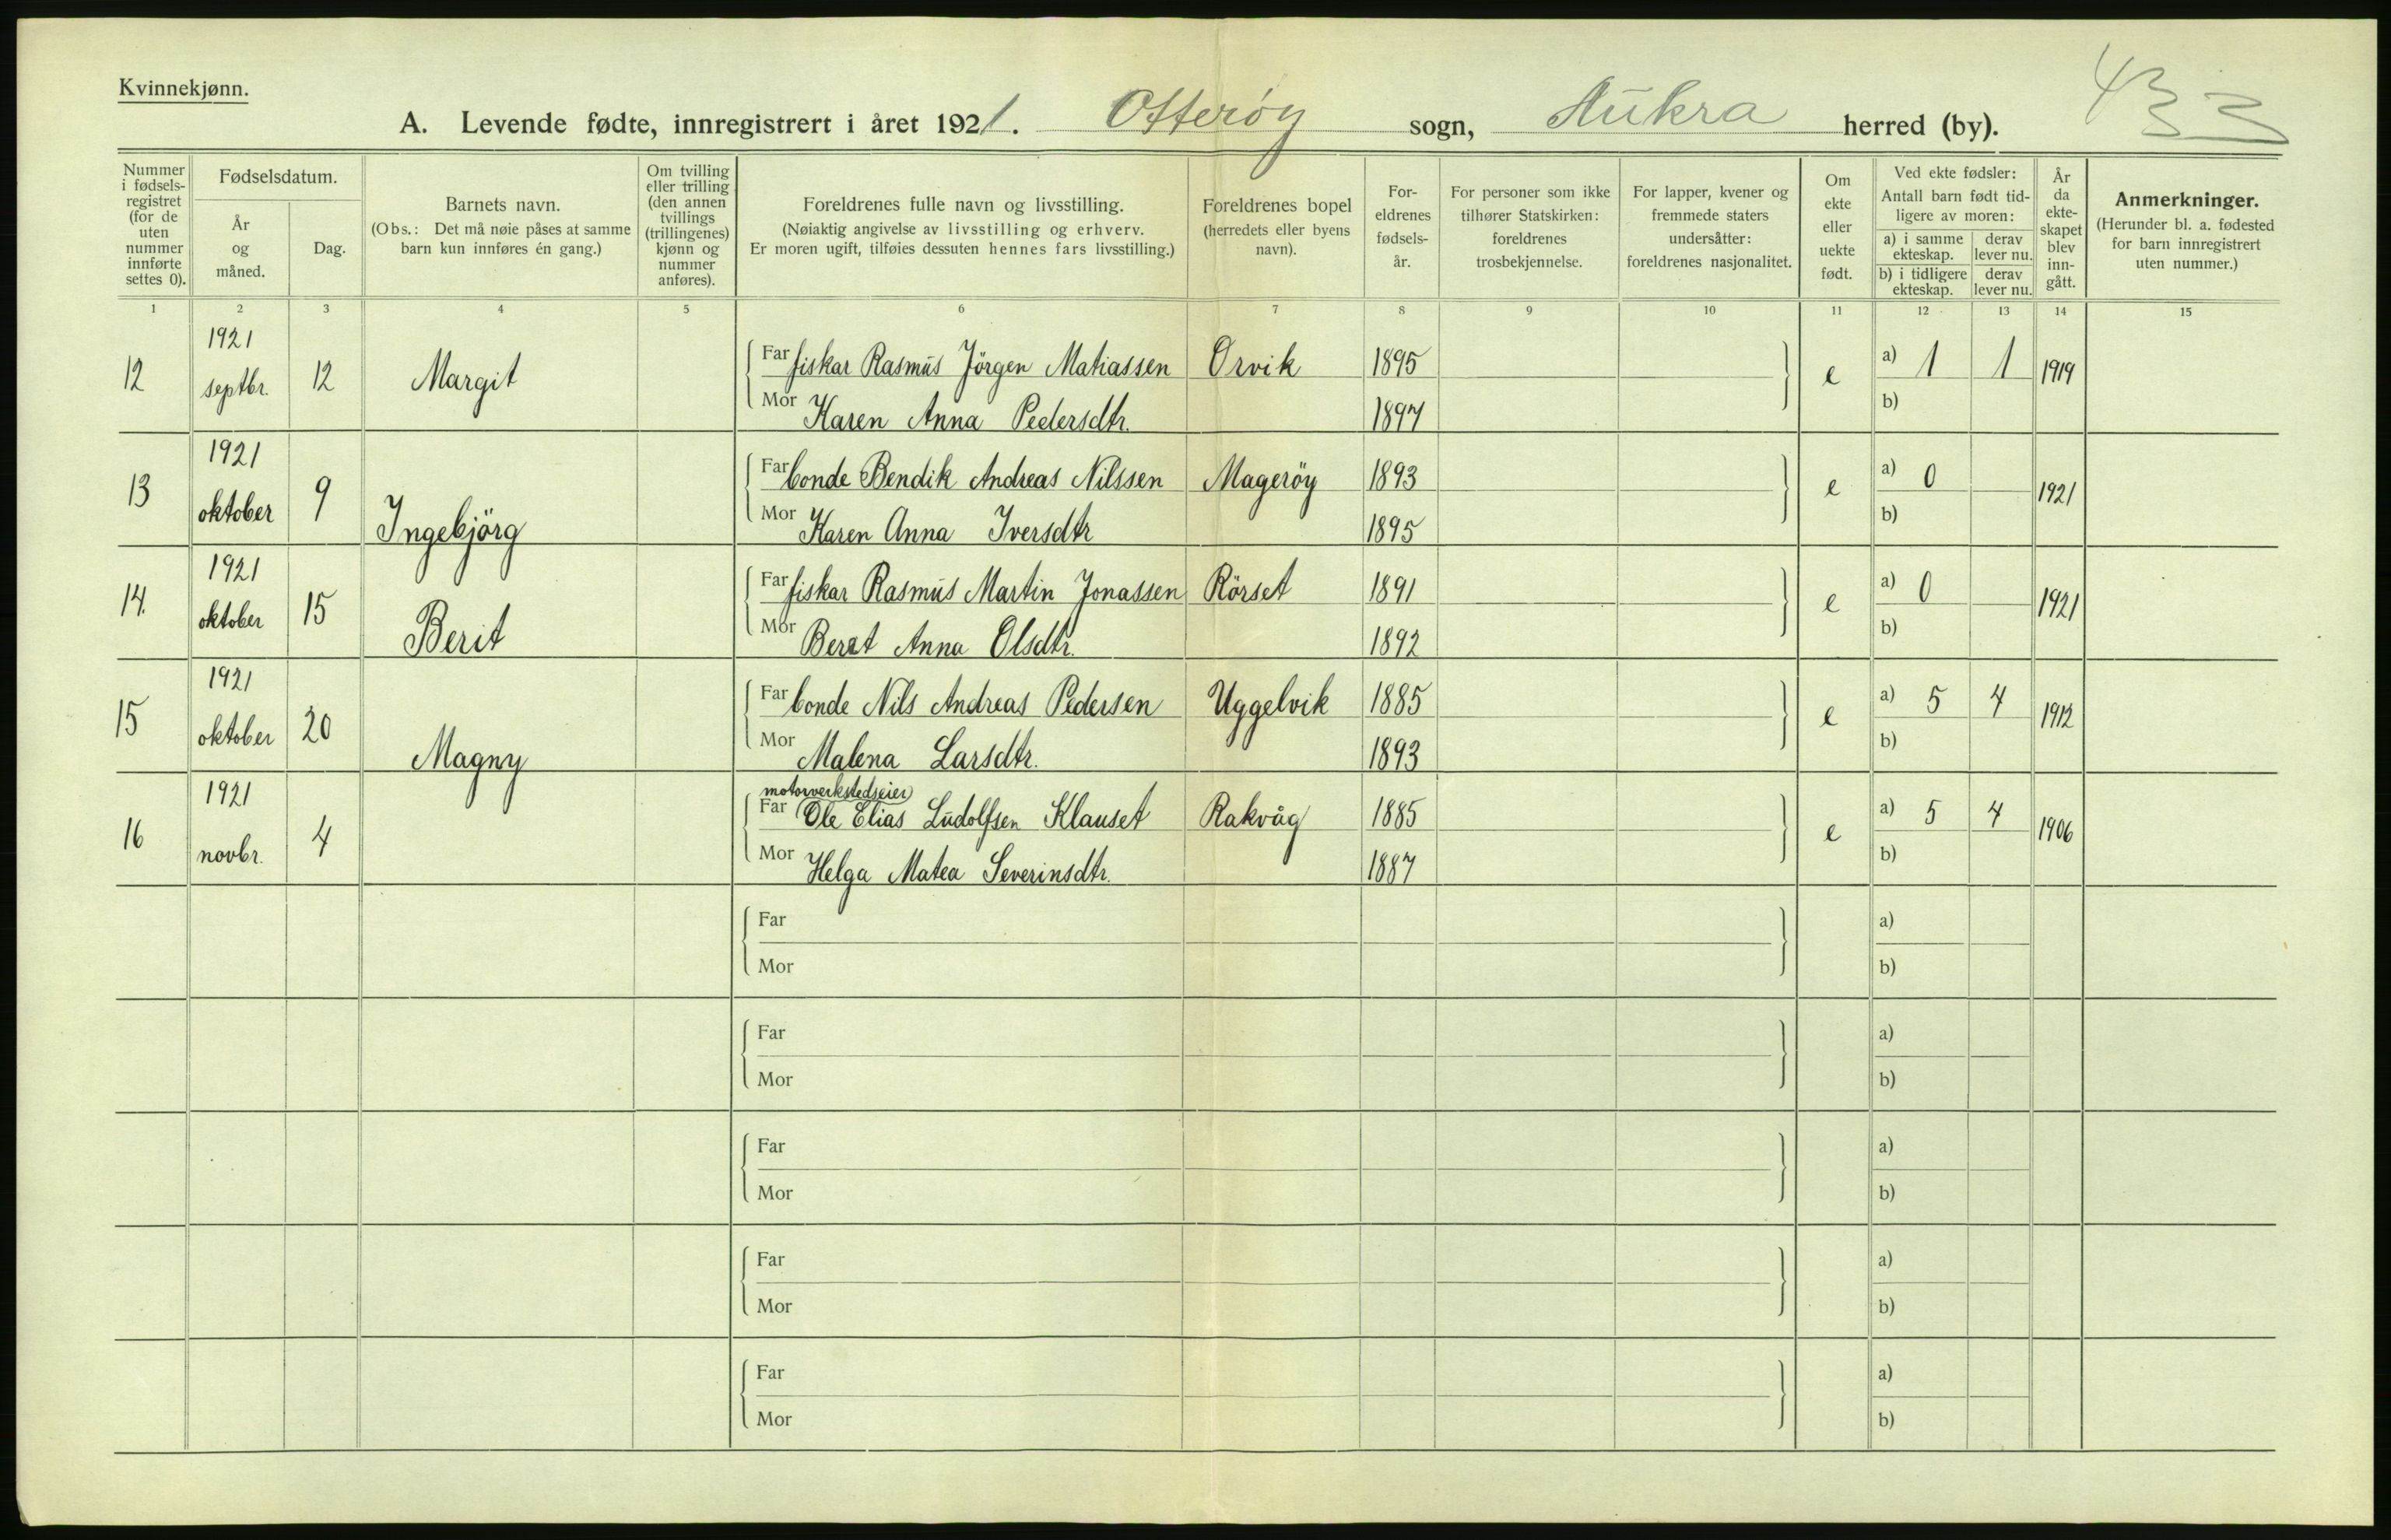 Kvinnekjønn.
433
A. Levende fødte, innregistrert i året 1921. Otterøy sogn, Aukra herred (by).
Nummer i fødsels- registret (for de uten nummer innførte settes 0).
Fødselsdatum.
År og måned.
Dag.
Barnets navn.
(Obs.: Det må nøie påses at samme barn kun innføres én gang.)
Om tvilling eller trilling (den annen tvillings (trillingenes) kjønn og nummer anføres).
Foreldrenes fulle navn og livsstilling.
(Nøiaktig angivelse av livsstilling og erhverv.
Er moren ugift, tilføies dessuten hennes fars livsstilling.)
Foreldrenes bopel
(herredets eller byens navn).
For- eldrenes fødsels- år.
For personer som ikke tilhører Statskirken: foreldrenes trosbekjennelse.
For lapper, kvener og fremmede staters undersåtter: foreldrenes nasjonalitet.
Om ekte eller uekte født.
Ved ekte fødsler:
Antall barn født tid- ligere av moren:
a) i samme ekteskap. derav lever nu.
b) i tidligere ekteskap. derav lever nu.
År da ekte- skapet blev inn- gått.
Anmerkninger.
(Herunder bl. a. fødested for barn innregistrert uten nummer.)
1 2 3 4 5 6 7 8 9 10 11 12 13 14 15
12 1921 septbr. 12 Margit
Far fiskar Rasmus Jörgen Matiassen Orvik 1895 e a) 1 1 1919
Mor Karen Anna Pedersdtr. 1897 b)
13 1921 oktober 9 Ingebjörg
Far bonde Bendik Andreas Nilssen Mageröy 1893 e a) 0 1921
Mor Karen Anna Iversdtr 1895 b)
14. 1921 oktober 15 Berit
Far fiskar Rasmus Martin Jonassen Rörset 1891 e a) 0 1921
Mor Beret Anna Olsdtr. 1892 b)
15 1921 oktober 20 Magny
Far bonde Nils Andreas Pedersen Uggelvik 1885 e a) 5 4 1912
Mor Malena Larsdtr. 1893 b)
16 1921 novbr. 4
motorverkstedseier
Far Ole Elias Ludolfsen Klauset Rakvåg 1885 e a) 5 4 1906
Mor Helga Matea Severinsdtr. 1887 b)
Far a)
Mor b)
Far a)
Mor b)
Far a)
Mor b)
Far a)
Mor b)
Far a)
Mor b)